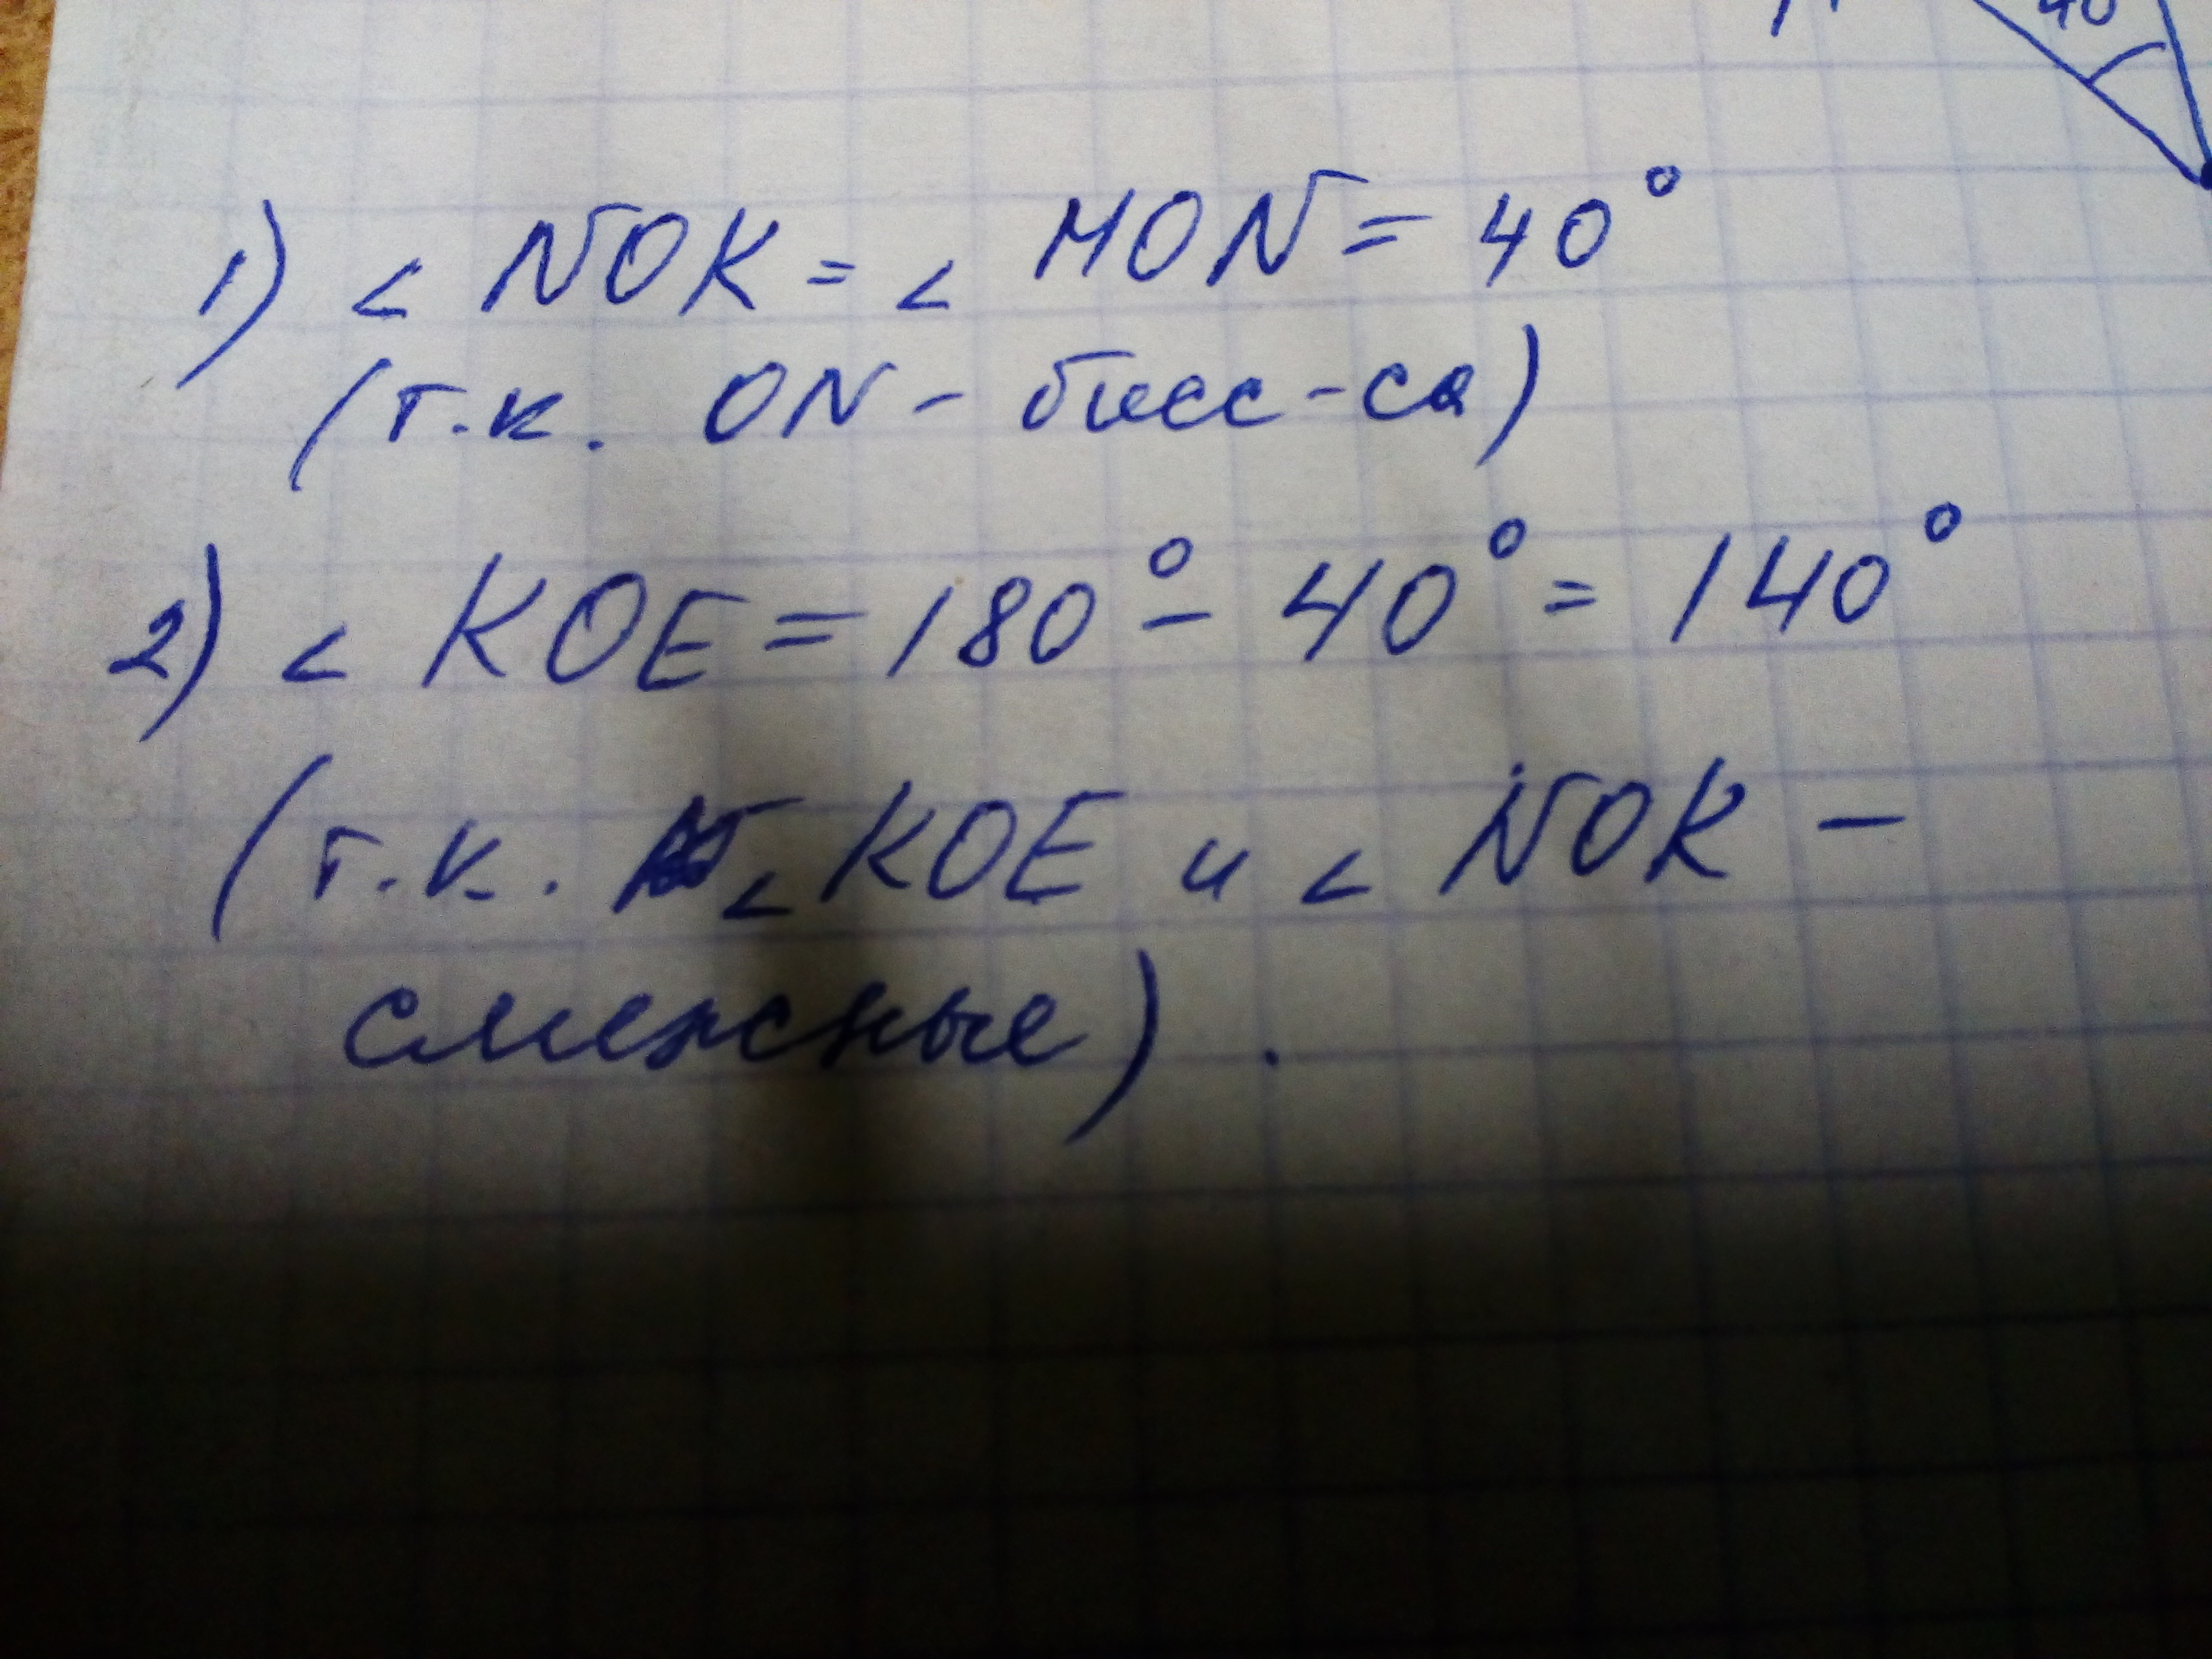 40
1) < NOK = < MON = 40°
(т.к. ON - бисс-са)
2) < KOE = 180° - 40° = 140°
(т.к. < KOE и < NOK -
смежные).